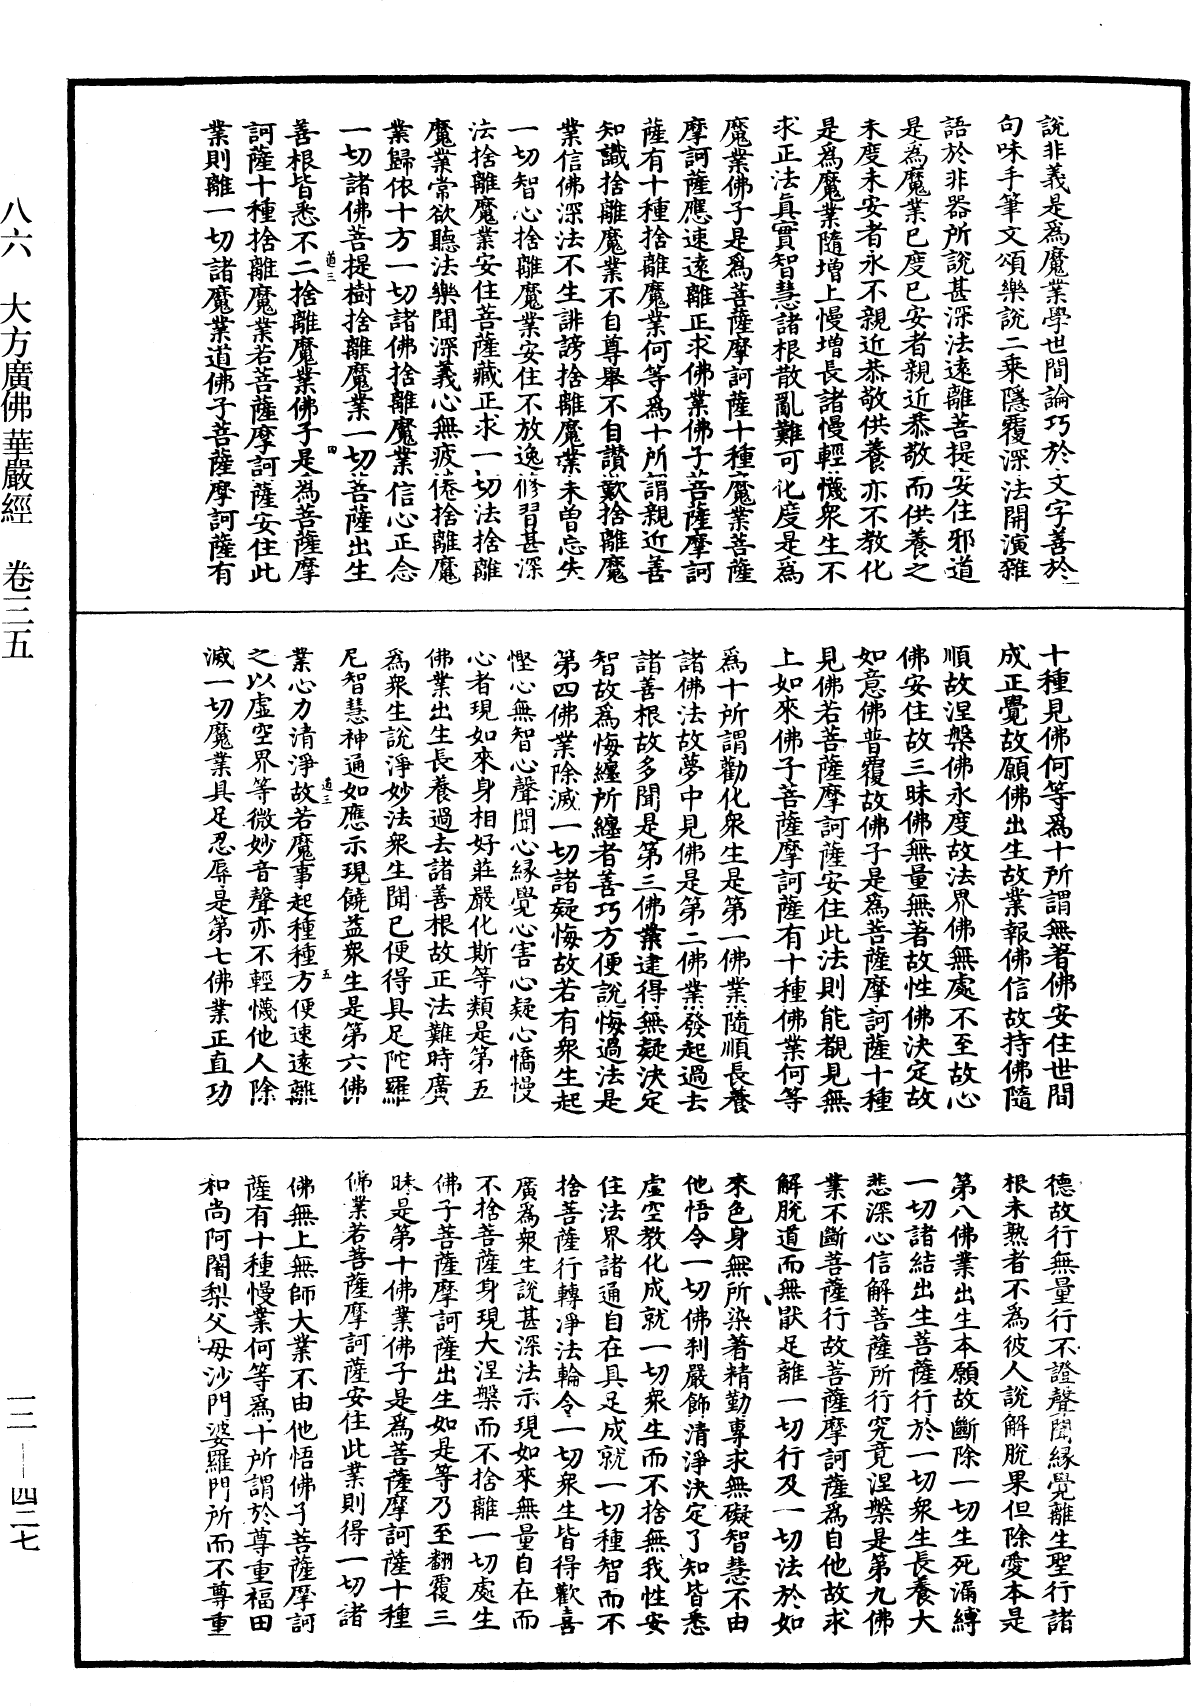 説非義是爲魔業學世間論巧於文字善於
句味手筆文頌樂説二乗隱覆深法開演雜
語於非器所説甚深法遠離菩提安住邪道
是為魔業已度已安者親近恭敬而供養之
未度未安者永不親近恭敬供養亦不教化
是爲魔業隨增上慢增長諸慢輕懱衆生不
求正法真實智慧諸根散亂難可化度是爲
魔業佛子是爲菩薩摩訶薩十種魔業菩薩
摩訶薩應速遠離正求佛業佛子菩薩摩訶
薩有十種捨離魔業何等爲十所謂親近善
知識捨離魔業不自尊舉不自讃歎捨離魔
業信佛深法不生誹謗捨離魔業未曽忘失
一切智心捨離魔業安住不放逸修習甚深
法捨離魔業安住菩薩藏正求一切法捨離
魔業常欲聽法樂聞深義心無疲倦捨離魔
業歸依十方一切諸佛捨離魔業信心正念
一切諸佛菩提樹捨離魔業一切菩薩出生
善根皆悉不二捨離魔業佛子是為菩薩摩
訶薩十種捨離魔業若菩薩摩訶薩安住此
業則離一切諸魔業道佛子菩薩摩訶薩有
道三
四
十種見佛何等爲十所謂無著佛安住世間
成正覺故願佛出生故業報佛信故持佛隨
順故涅槃佛永度故法界佛無處不至故心
佛安住故三昧佛無量無著故性佛決定故
如意佛普覆故佛子是爲菩薩摩訶薩十種
見佛若菩薩摩訶薩安住此法則能覩見無
上如來佛子菩薩摩訶薩有十種佛業何等
爲十所謂勸化衆生是第一佛業隨順長養
諸佛法故夢中見佛是第二佛業發起過去
諸善根故多聞是第三佛業逮得無疑決定
智故爲悔纏所纏者善巧方便説悔過法是
第四佛業除滅一切諸疑悔故若有衆生起
慳心無智心聲聞心緣覺心害心疑心憍慢
心者現如來身相好莊嚴化斯等類是第五
佛業出生長養過去諸善根故正法難時廣
爲衆生説淨妙法衆生聞已便得具足陀羅
尼智慧神通如應示現饒益衆生是第六佛
業心力清淨故若魔事起種種方便速遠離
之以虚空界等微妙音聲亦不輕懱他人除
滅一切魔業具足忍辱是第七佛業正直功
道三
五
德故行無量行不證聲聞緣覺離生聖行諸
根未熟者不為彼人說解脫果但除愛本是
第八佛業出生本願故斷除一切生死漏縛
一切諸結出生菩薩行於一切衆生長養大
悲深心信解菩薩所行究竟涅槃是第九佛
業不斷菩薩行故菩薩摩訶薩爲自他故求
解脫道而無猒足離一切行及一切法於如
來色身無所染著精勤專求無礙智慧不由
他悟令一切佛刹嚴飾清淨決定了知皆悉
虚空教化成就一切衆生而不捨無我性安
住法界諸通自在具足成就一切種智而不
捨菩薩行轉淨法輪令一切衆生皆得歡喜
廣爲衆生說甚深法示現如來無量自在而
不捨菩薩身現大涅槃而不捨離一切處生
佛子菩薩摩訶薩出生如是等乃至翻覆三
昧是第十佛業佛子是爲菩薩摩訶薩十種
佛業若菩薩摩訶薩安住此業則得一切諸
佛無上無師大業不由他悟佛子菩薩摩訶
薩有十種慢業何等爲十所謂於尊重福田
和尚阿闍梨父母沙門婆羅門所而不尊重
八六　大方廣佛華嚴經　卷三五
一三—四二七